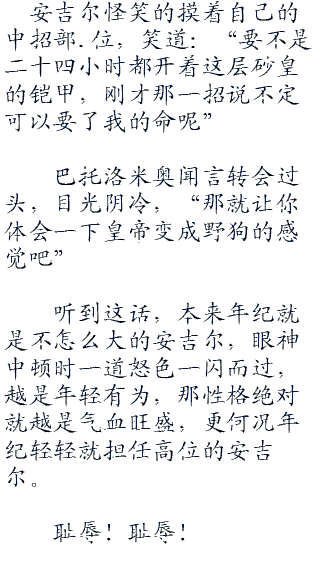 安吉尔怪笑的摸着自己的
中招部.位，笑道：“要不是
二十四小时都开着这层砂皇
的铠甲，刚才那一招说不定
可以要了我的命呢”
巴托洛米奥闻言转会过
头，目光阴冷，“那就让你
体会一下皇帝变成野狗的感
觉吧”
听到这话，本来年纪就
是不怎么大的安吉尔，眼神
中顿时一道怒色一闪而过，
越是年轻有为，那性格绝对
就越是气血旺盛，更何况年
纪轻轻就担任高位的安吉
尔。
耻辱！耻辱！